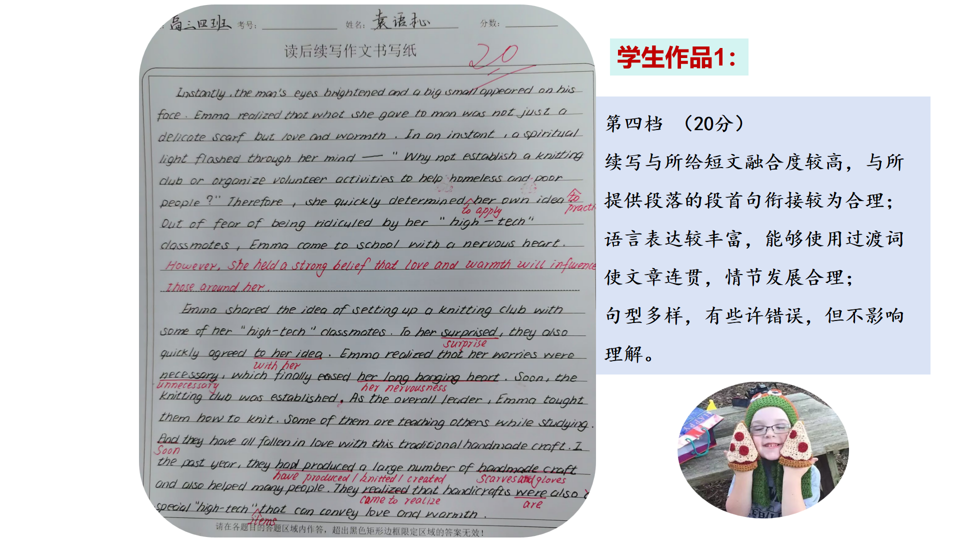 高三四班 考号： 姓名： 袁语杺 分数：
读后续写作文书写纸
20
Instantly, the man's eyes brightened and a big small appeared on his
face. Emma realized that what she gave to man was not just a
delicate scarf but love and warmth. In an instant, a spiritual
light flashed through her mind — "Why not establish a knitting
club or organize volunteer activities to help homeless and poor
people?" Therefore, she quickly determined her own idea to
to apply practi
Out of fear of being ridiculed by her "high-tech"
classmates, Emma come to school with a nervous heart.
However, she held a strong belief that love and warmth will influence
those around her.
Emma shared the idea of setting up a knitting club with
some of her "high-tech" classmates. To her surprised, they also
surprise
quickly agreed to her idea. Emma realized that her worries were
with her
necessary, which finally eased her long hanging heart. Soon, the
unnecessary her nervousness
knitting club was established. As the overall leader, Emma taught
them how to knit. Some of them are teaching others while studying.
And they have all fallen in love with this traditional handmade craft. I
Soon
the past year, they had produced a large number of handmade craft
have produced / knitted / created scarves and gloves
and also helped many people. They realized that handicrafts were also
came to realize are
special "high-tech" that can convey love and warmth.
items
请在各题目的答题区域内作答，超出黑色矩形边框限定区域的答案无效！
学生作品1：
第四档 （20分）
续写与所给短文融合度较高，与所
提供段落的段首句衔接较为合理；
语言表达较丰富，能够使用过渡词
使文章连贯，情节发展合理；
句型多样，有些许错误，但不影响
理解。